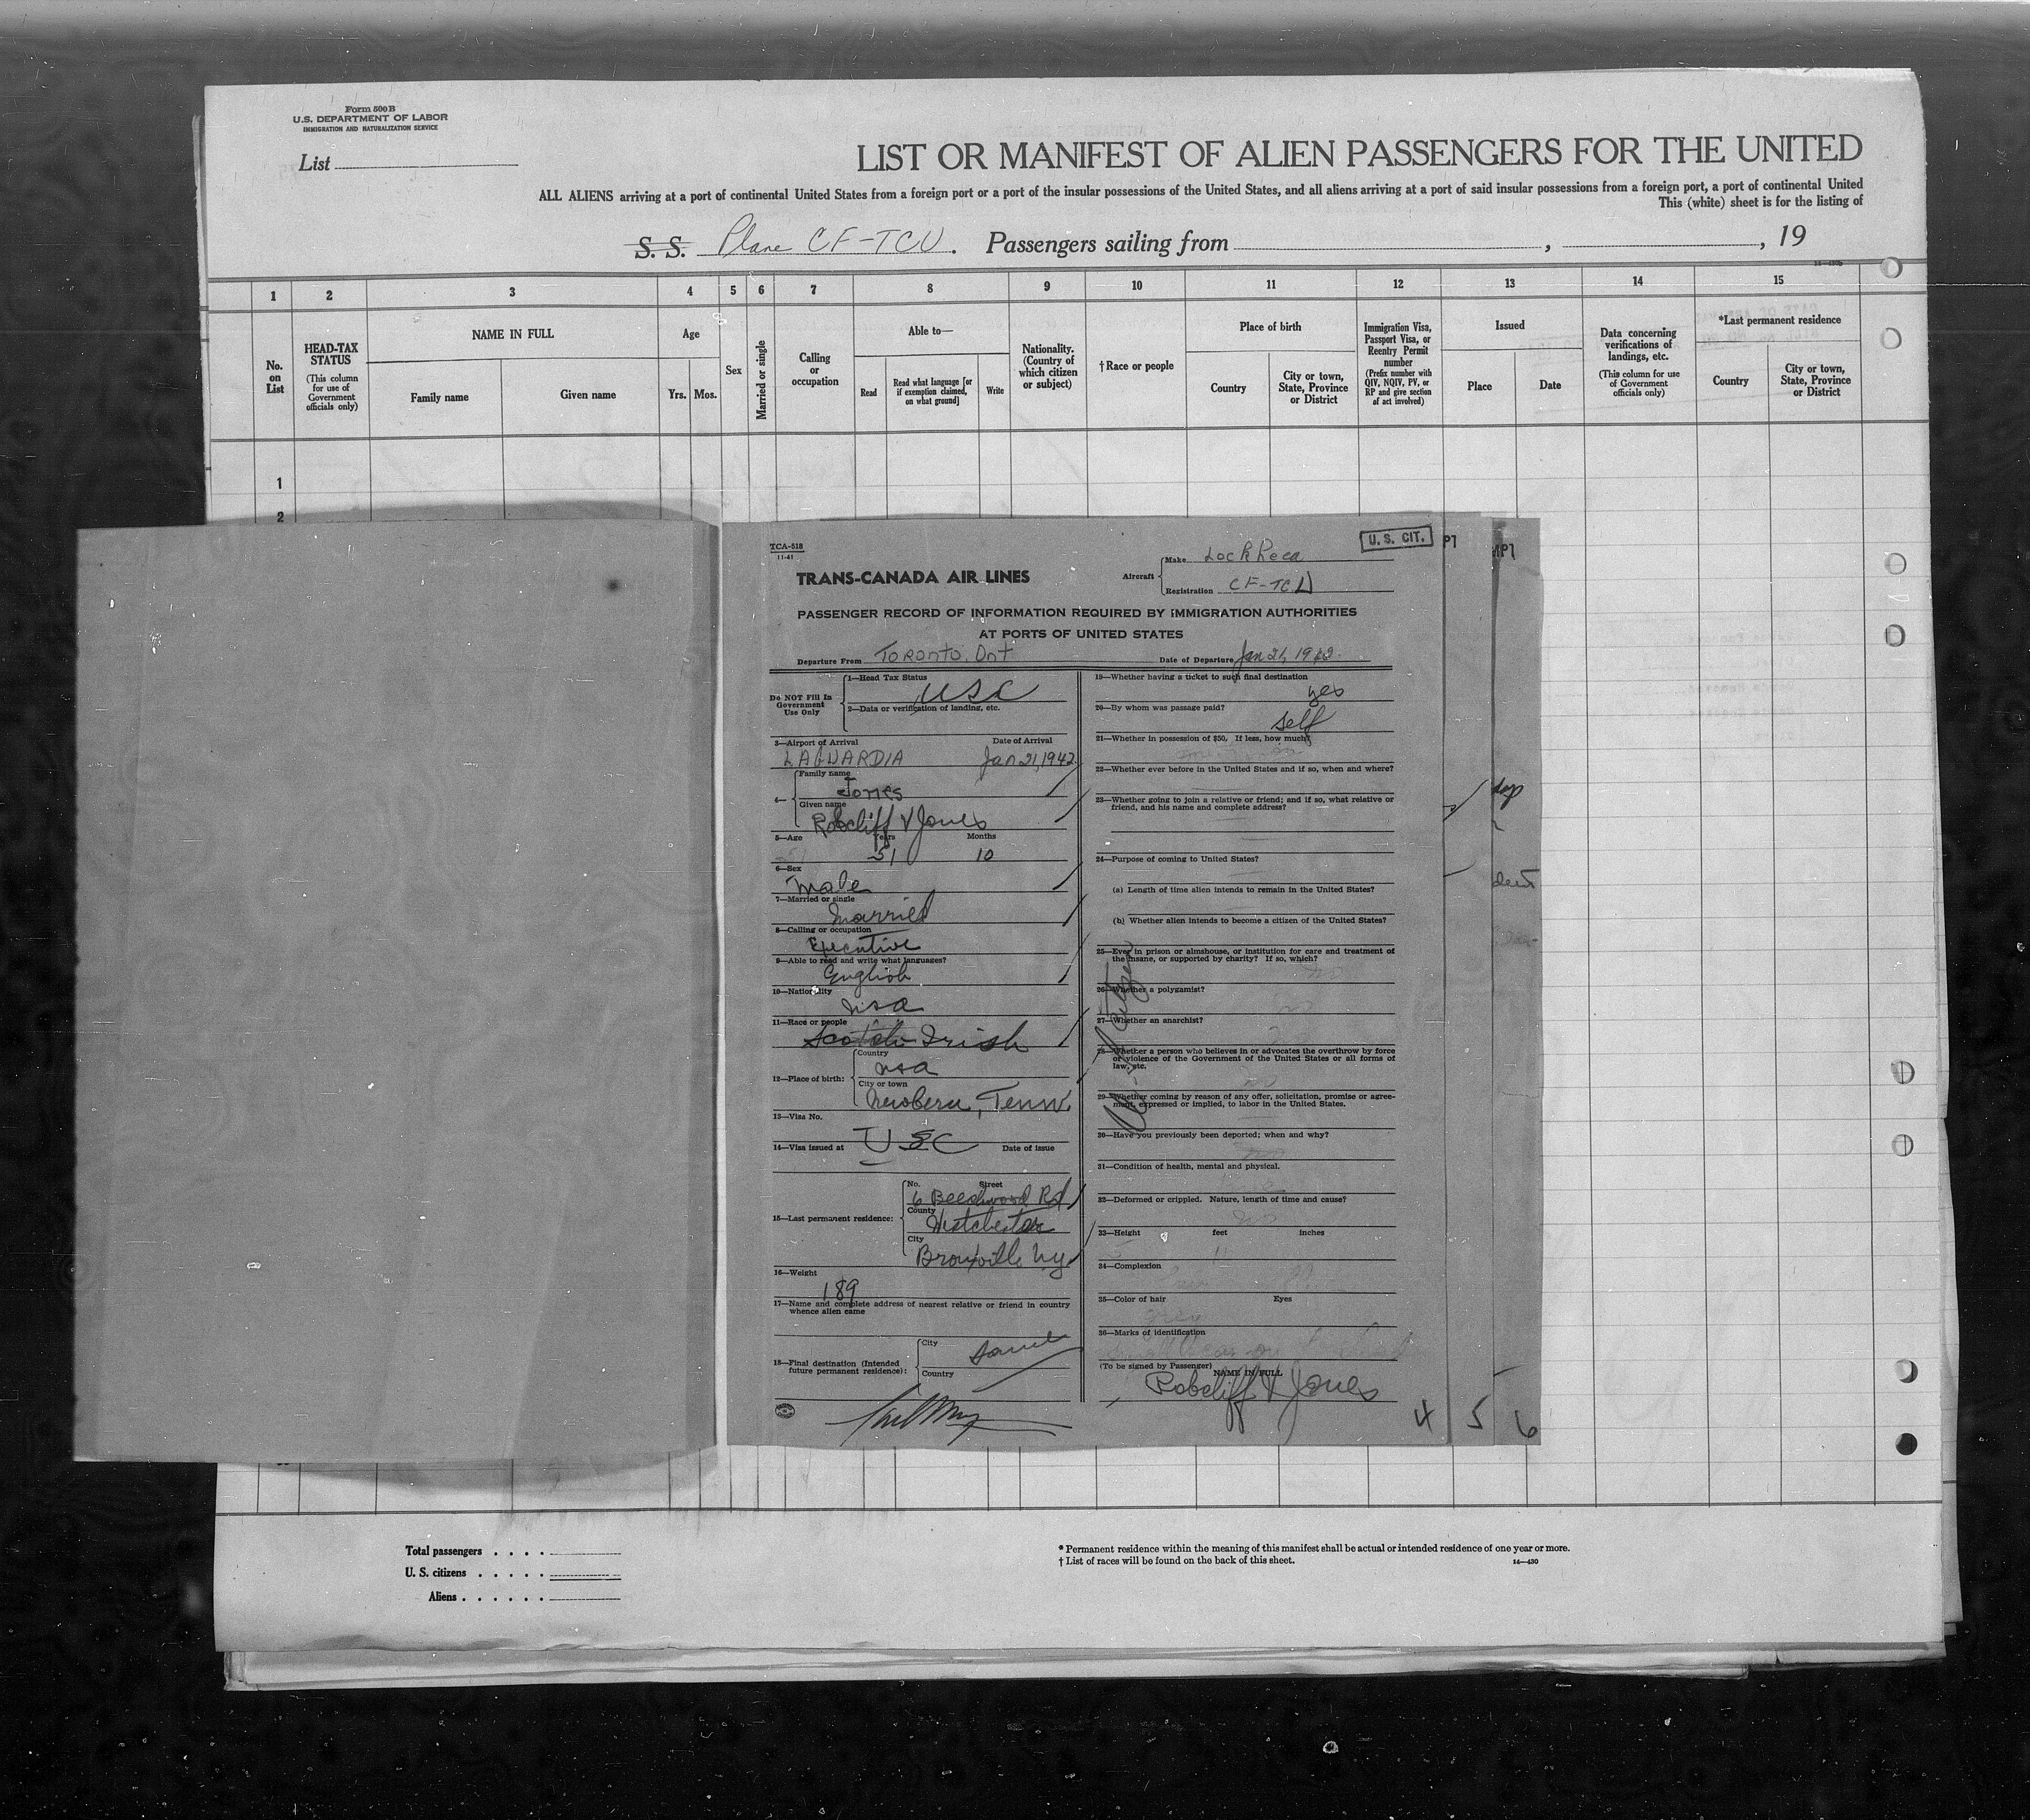 Form 500B
U.S. DEPARTMENT OF LABOR
IMMIGRATION AND NATURALIZATION SERVICE
List
LIST OR MANIFEST OF ALIEN PASSENGERS FOR THE UNITED
ALL ALIENS arriving at a port of continental United States from a foreign port or a port of the insular possessions of the United States, and all aliens arriving at a port of said insular possessions from a foreign port, a port of continental United
This (white) sheet is for the listing of
S. S. Plane CF-TCU. Passengers sailing from , , 19
1 2 3 4 5 6 7 8 9 10 11 12 13 14 15
No. on List
HEAD-TAX STATUS
(This column for use of Government officials only)
NAME IN FULL
Family name
Given name
Age
Yrs. Mos.
Sex
Married or single
Calling or occupation
Able to—
Read
Read what language [or if exemption claimed, on what ground]
Write
Nationality. (Country of which citizen or subject)
† Race or people
Place of birth
Country
City or town, State, Province or District
Immigration Visa, Passport Visa, or Reentry Permit number
(Prefix number with QIV, NQIV, PV, or RP and give section of act involved)
Issued
Place
Date
Data concerning verifications of landings, etc.
(This column for use of Government officials only)
*Last permanent residence
Country
City or town, State, Province or District
1
2
TCA-518
11-41
U. S. CIT.
TRANS-CANADA AIR LINES
Aircraft
Make
Registration CF-TCU
PASSENGER RECORD OF INFORMATION REQUIRED BY IMMIGRATION AUTHORITIES
AT PORTS OF UNITED STATES
Departure From Toronto, Ont Date of Departure Jan 21, 1942
Do NOT Fill In Government Use Only
1—Head Tax Status
USC
2—Data or verification of landing, etc.
3—Airport of Arrival Date of Arrival
LAGUARDIA Jan 21, 1942
4—
Family name
Jones
Given name
Robcliff V Jones
5—Age Years Months
51 10
6—Sex
Male
7—Married or single
Married
8—Calling or occupation
Executive
9—Able to read and write what languages?
English
10—Nationality
USA
11—Race or people
Scotch Irish
12—Place of birth:
Country
USA
City or town
Newbern, Tenn.
13—Visa No.
14—Visa issued at USC Date of issue
15—Last permanent residence:
No. Street
6 Beechwood Rd
County
Westchester
City
Bronxville NY
16—Weight
189
17—Name and complete address of nearest relative or friend in country whence alien came
18—Final destination (Intended future permanent residence):
City
Same
Country
19—Whether having a ticket to such final destination
yes
20—By whom was passage paid?
self
21—Whether in possession of $50. If less, how much?
22—Whether ever before in the United States and if so, when and where?
23—Whether going to join a relative or friend; and if so, what relative or friend, and his name and complete address?
24—Purpose of coming to United States?
(a) Length of time alien intends to remain in the United States?
(b) Whether alien intends to become a citizen of the United States?
25—Ever in prison or almshouse, or institution for care and treatment of the insane, or supported by charity? If so, which?
no
26—Whether a polygamist?
no
27—Whether an anarchist?
28—Whether a person who believes in or advocates the overthrow by force or violence of the Government of the United States or all forms of law, etc.
no
29—Whether coming by reason of any offer, solicitation, promise or agreement, expressed or implied, to labor in the United States.
30—Have you previously been deported; when and why?
no
31—Condition of health, mental and physical.
32—Deformed or crippled. Nature, length of time and cause?
no
33—Height feet inches
5 11
34—Complexion
35—Color of hair Eyes
grey
36—Marks of identification
(To be signed by Passenger)
NAME IN FULL
Robcliff V Jones
4 5 6
Total passengers
U. S. citizens
Aliens
* Permanent residence within the meaning of this manifest shall be actual or intended residence of one year or more.
† List of races will be found on the back of this sheet.
14—430